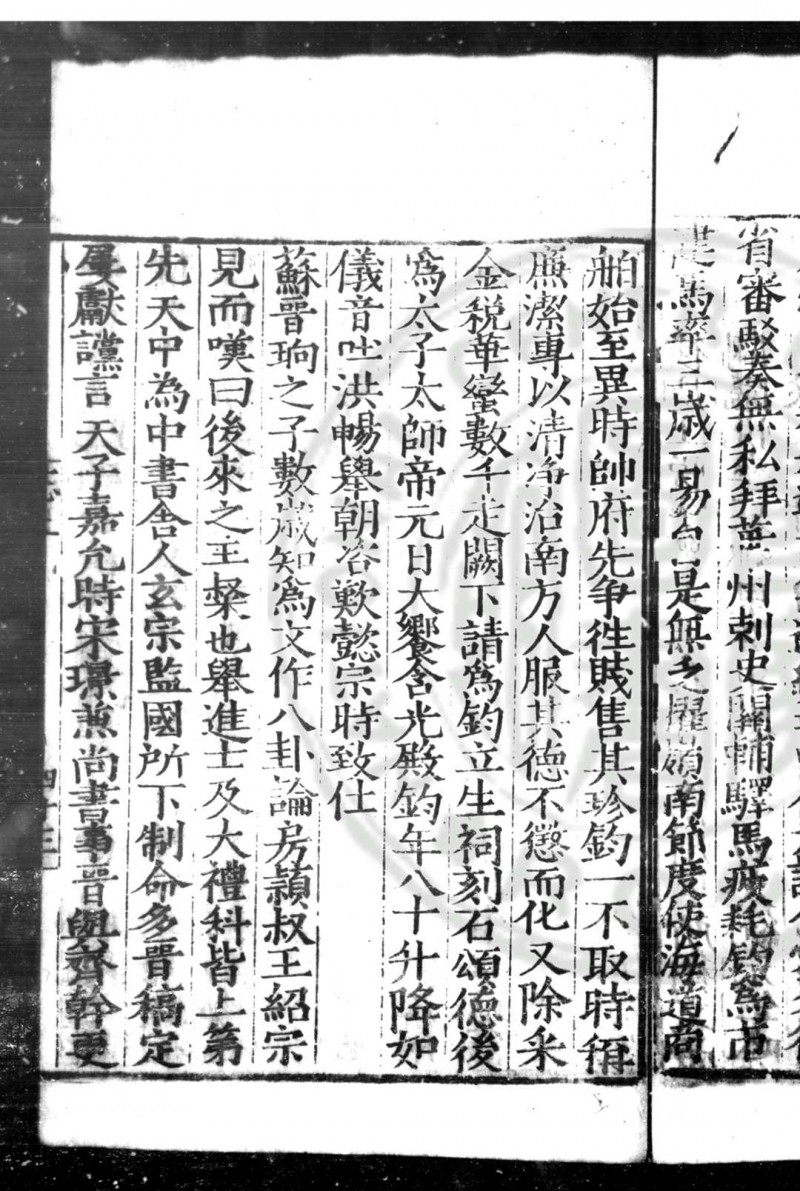 省審駁奏無私拜華州刺史關輔驛馬疲耗鈞爲市
建馬率三歲一易自是無乏擢嶺南節度使海道商
舶始至異時帥府先争徃賤售其珍鈞一不取時稱
廉潔專以清净治南方人服其德不懲而化又除采
金稅華蠻數千走闕下請爲鈞立生祠刻石頌德後
爲太子太師帝元日大饗含光殿鈞年八十升降如
儀音吐洪暢舉朝咨歎懿宗時致仕
蘇晋珦之子數歲知爲文作八卦論房穎叔王紹宗
見而嘆曰後來之王粲也舉進士及大禮科皆上第
先天中為中書舎人玄宗監國所下制命多晋稿定
屢獻讜言天子嘉允時宋璟兼尚書事晋與齊幹更